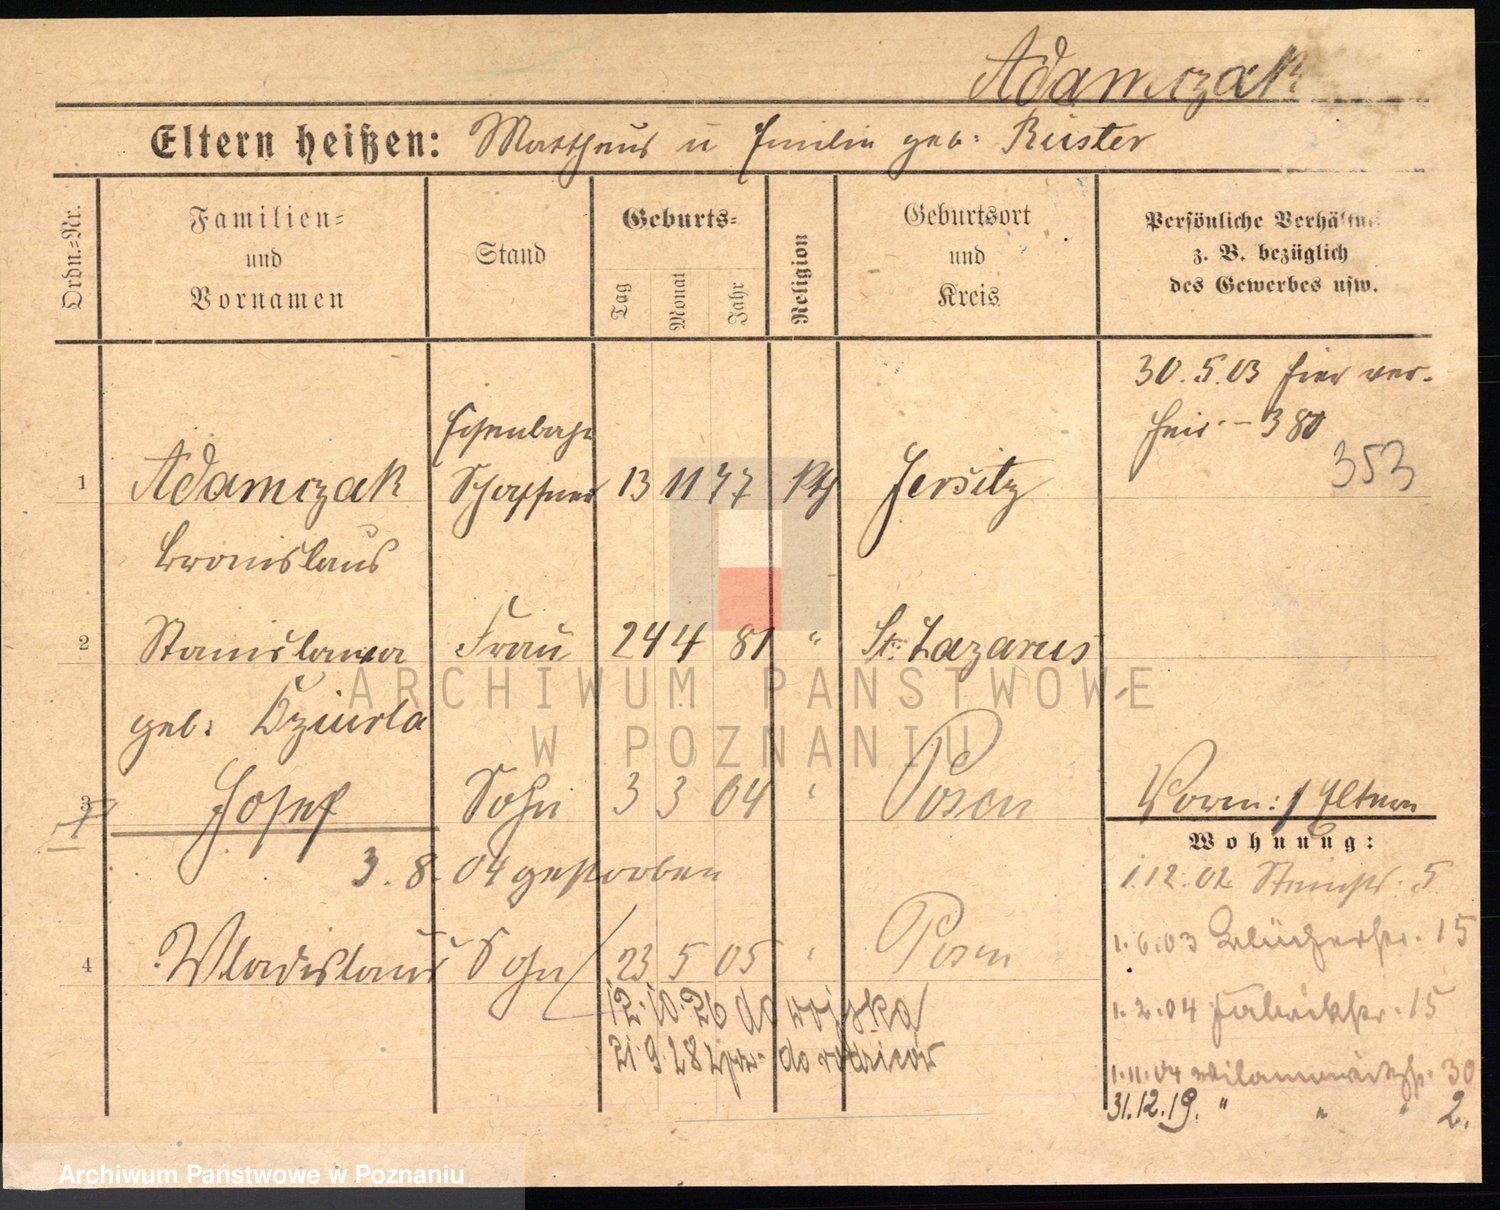 Adamczak
Eltern heißen: Matthäus u Emilie geb: Rüster
Ordn.=Nr.
Familien=
und
Vornamen
Stand
Geburts=
Tag
Monat
Jahr
Religion
Geburtsort
und
Kreis
Persönliche Verhältn
z. B. bezüglich
des Gewerbes usw.
30. 5. 03 hier ver-
heir. - 380
353
Eisenbahn
1 Adamczak Schaffner 13 11 77 kth Jersitz
Bronislaus
2 Stanislawa Frau 24 4 81 " St. Lazarus
geb: Dziurla
3 Josef Sohn 3 3 04 " Posen
Vorm: / Eltern
3. 8. 04 gestorben
4 Wladislaus Sohn 23 5 05 " Posen
15. 10. 26 do wojska
21. 9. 28 do rodziców
Wohnung:
1. 12. 02 5
1. 6. 03 Blücherstr. 15
1. 2. 04 Fabrikstr. 15
1. 11. 04 30
31. 12. 19. " " " 2.
ARCHIWUM PAŃSTWOWE
W POZNANIU
Archiwum Państwowe w Poznaniu